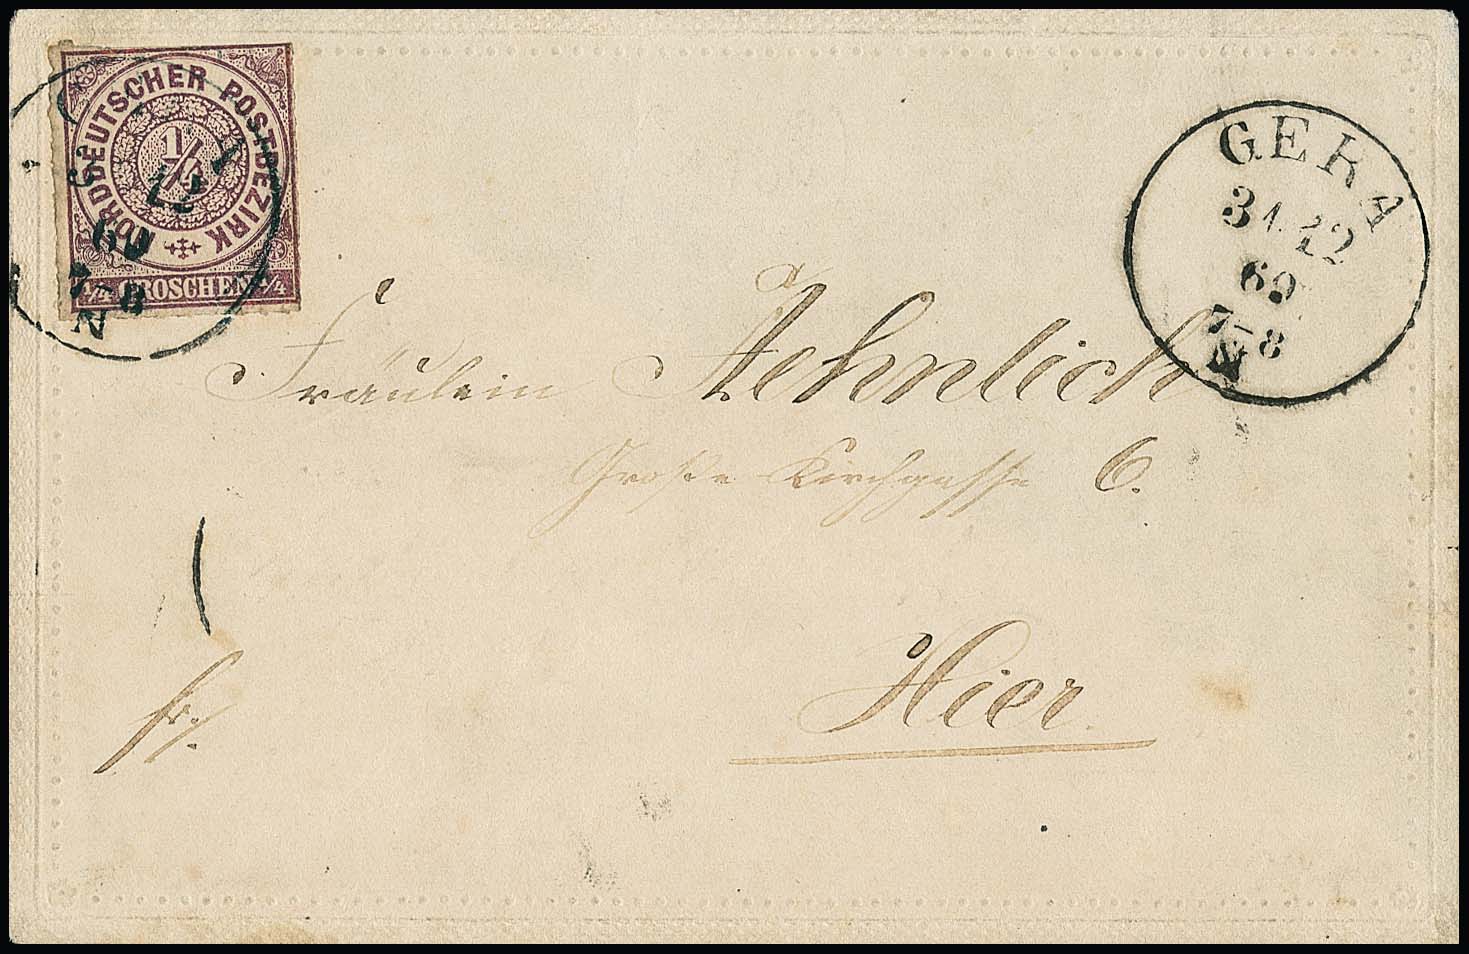 NORDDEUTSCHER POSTBEZIRK
1/4
1/4 GROSCHEN 1/4
69
7-8
N
GERA
31.12
69
7-8
N
Fräulein Aehnlich
Große Kirchgasse 6.
Hier.
fr.